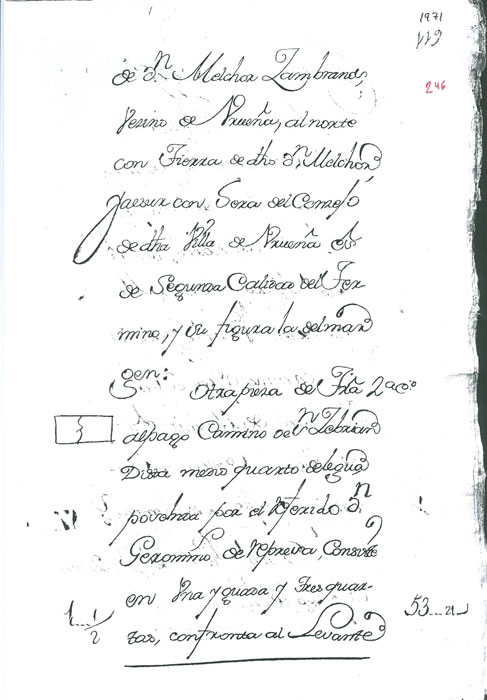 1971
119
246
de Dn. Melchor Zambranos,
Vezino de Vrueña, al norte
con Tierra de dho Dn. Melchor
y al sur con del Consejo
de dha Villa de Vrueña es
de Segunda Calidad del Ter-
mino, y su figura la del mar
gen:
Otra pieza de Tra 2a
al pago Camino de Sn Zebrian
Dista medio quarto de legua
por el referido Dn
Geronimo de Consiste
en Vna yguada y Tres quar-
tas, confronta al Levante
1 1/2
53